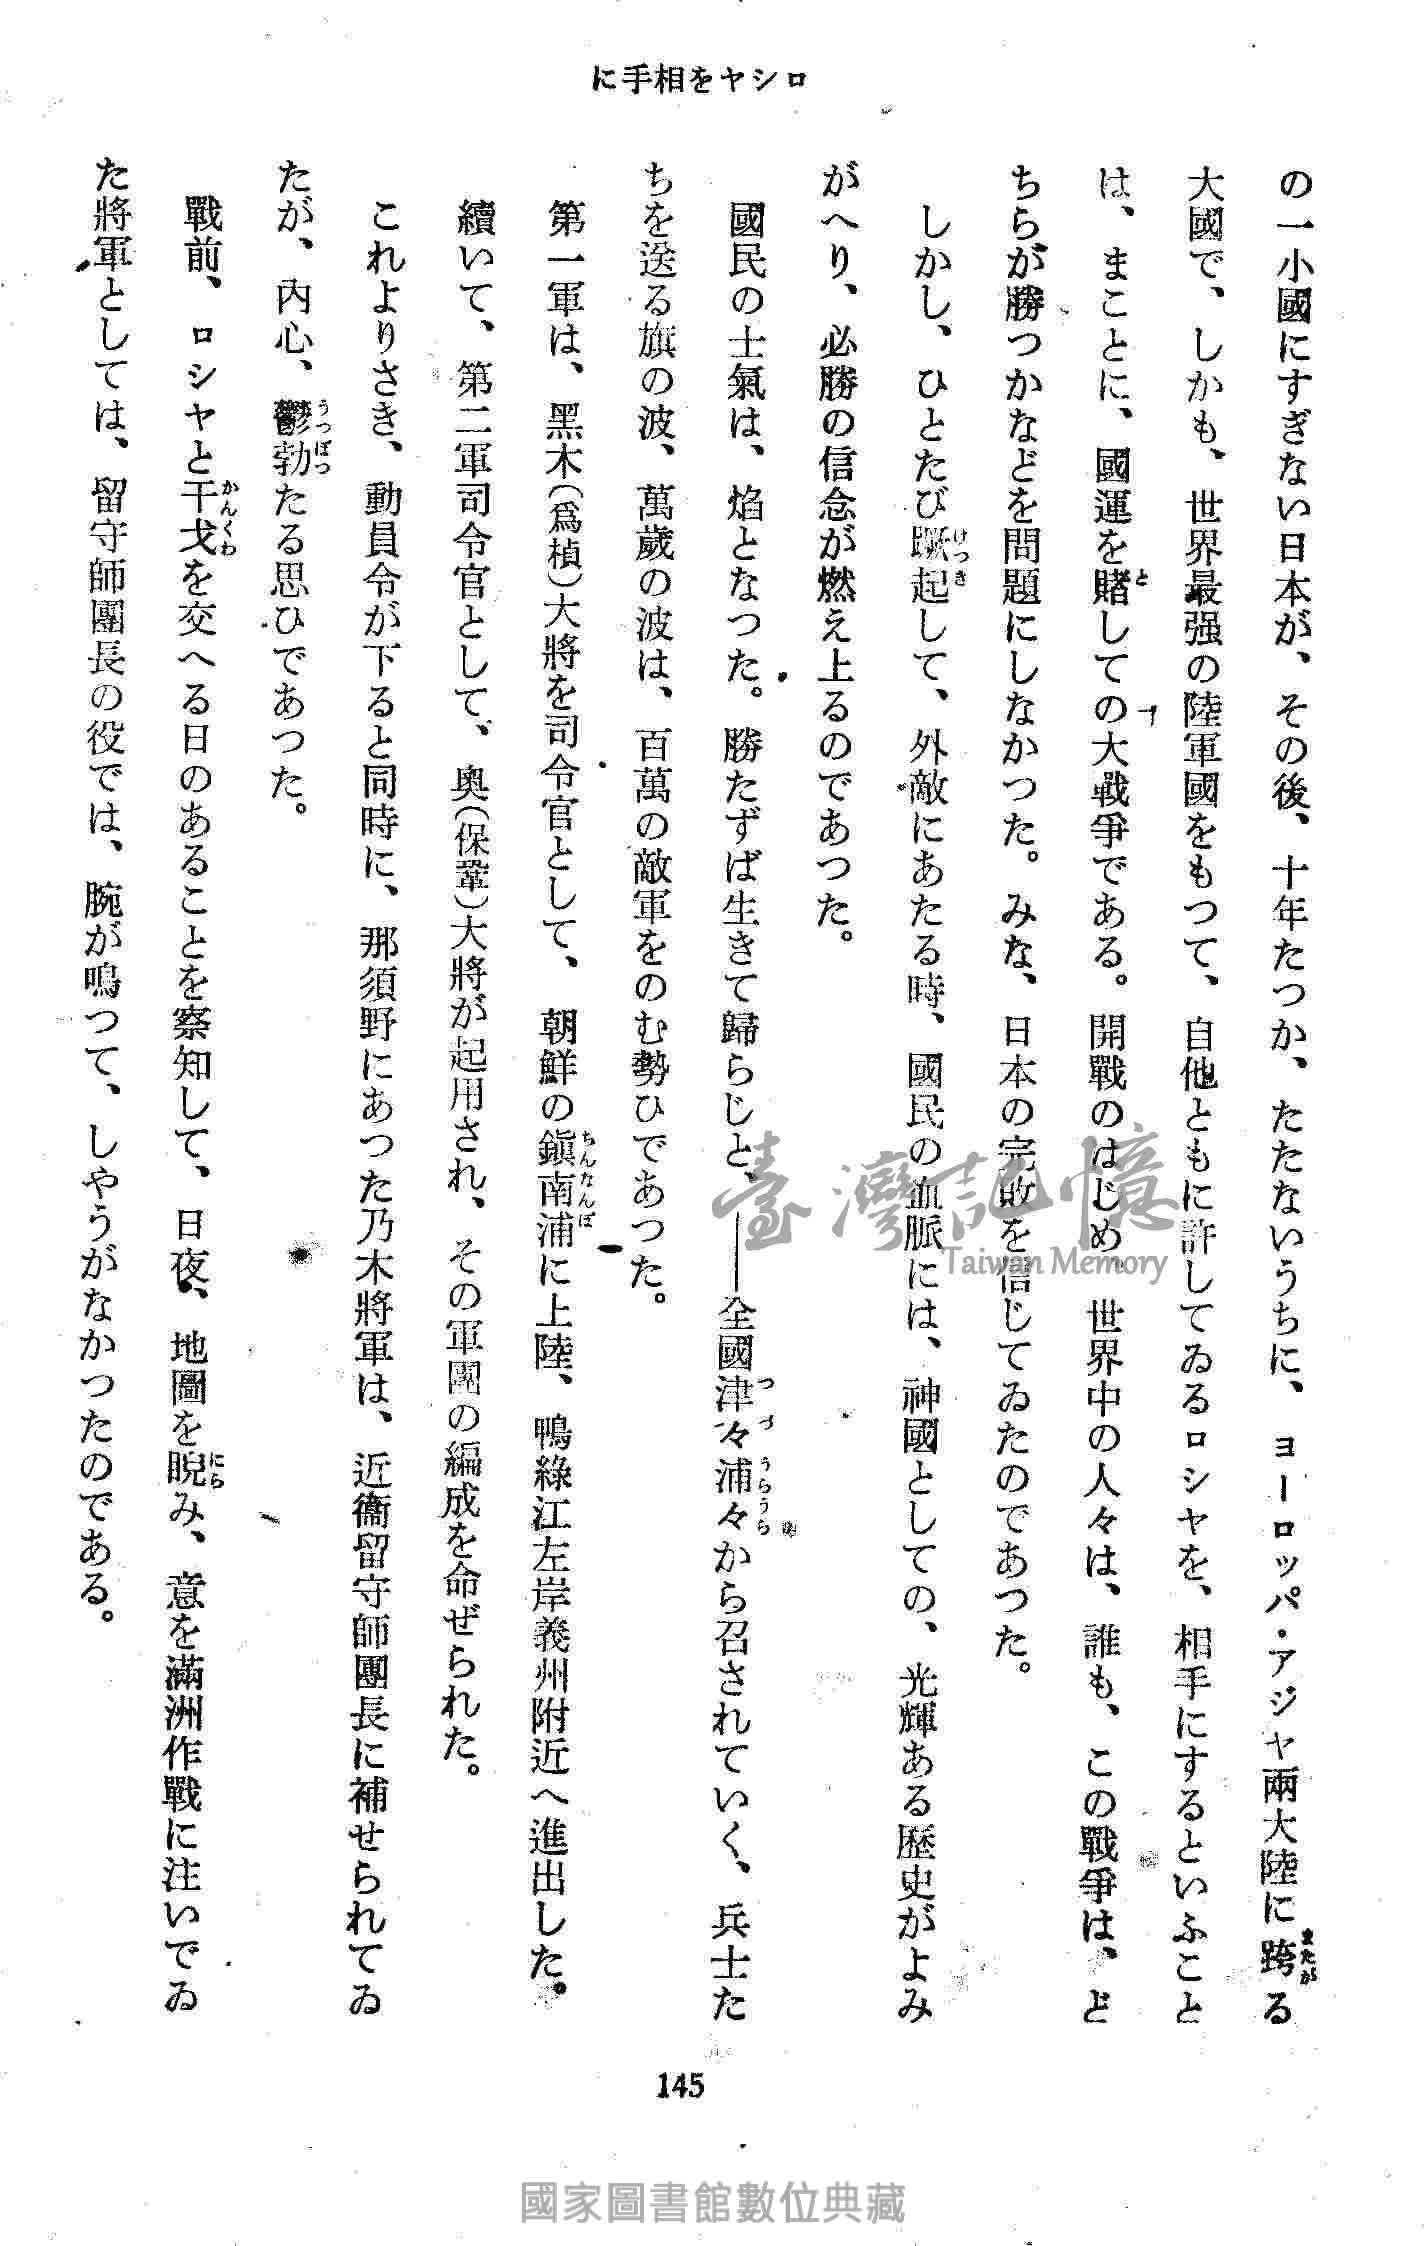 に手相をヤシロ
の一小國にすぎない日本が、その後、十年たつか、たたないうちに、ヨーロッパ・アジヤ兩大陸に跨る
大國で、しかも、世界最强の陸軍國をもつて、自他ともに許してゐるロシヤを、相手にするといふこと
は、まことに、國運を賭しての大戰爭である。開戰のはじめ、世界中の人々は、誰も、この戰爭は、ど
ちらが勝つかなどを問題にしなかつた。みな、日本の完敗を信じてゐたのであつた。
しかし、ひとたび蹶起して、外敵にあたる時、國民の血脈には、神國としての、光輝ある歷史がよみ
がへり、必勝の信念が燃え上るのであつた。
國民の士氣は、焰となつた。勝たずば生きて歸らじと、――全國津々浦々から召されていく、兵士た
ちを送る旗の波、萬歲の波は、百萬の敵軍をのむ勢ひであつた。
第一軍は、黑木(爲楨)大將を司令官として、朝鮮の鎭南浦に上陸、鴨綠江左岸義州附近へ進出した。
續いて、第二軍司令官として、奧(保鞏)大將が起用され、その軍團の編成を命ぜられた。
これよりさき、動員令が下ると同時に、那須野にあつた乃木將軍は、近衞留守師團長に補せられてゐ
たが、內心、鬱勃たる思ひであつた。
戰前、ロシヤと干戈を交へる日のあることを察知して、日夜、地圖を睨み、意を滿洲作戰に注いでゐ
た將軍としては、留守師團長の役では、腕が鳴つて、しやうがなかつたのである。
またが
と
けつき
つづうらうら
ちんなんぽ
うつぼつ
かんくわ
にら
145
臺灣記憶
Taiwan Memory
國家圖書館數位典藏